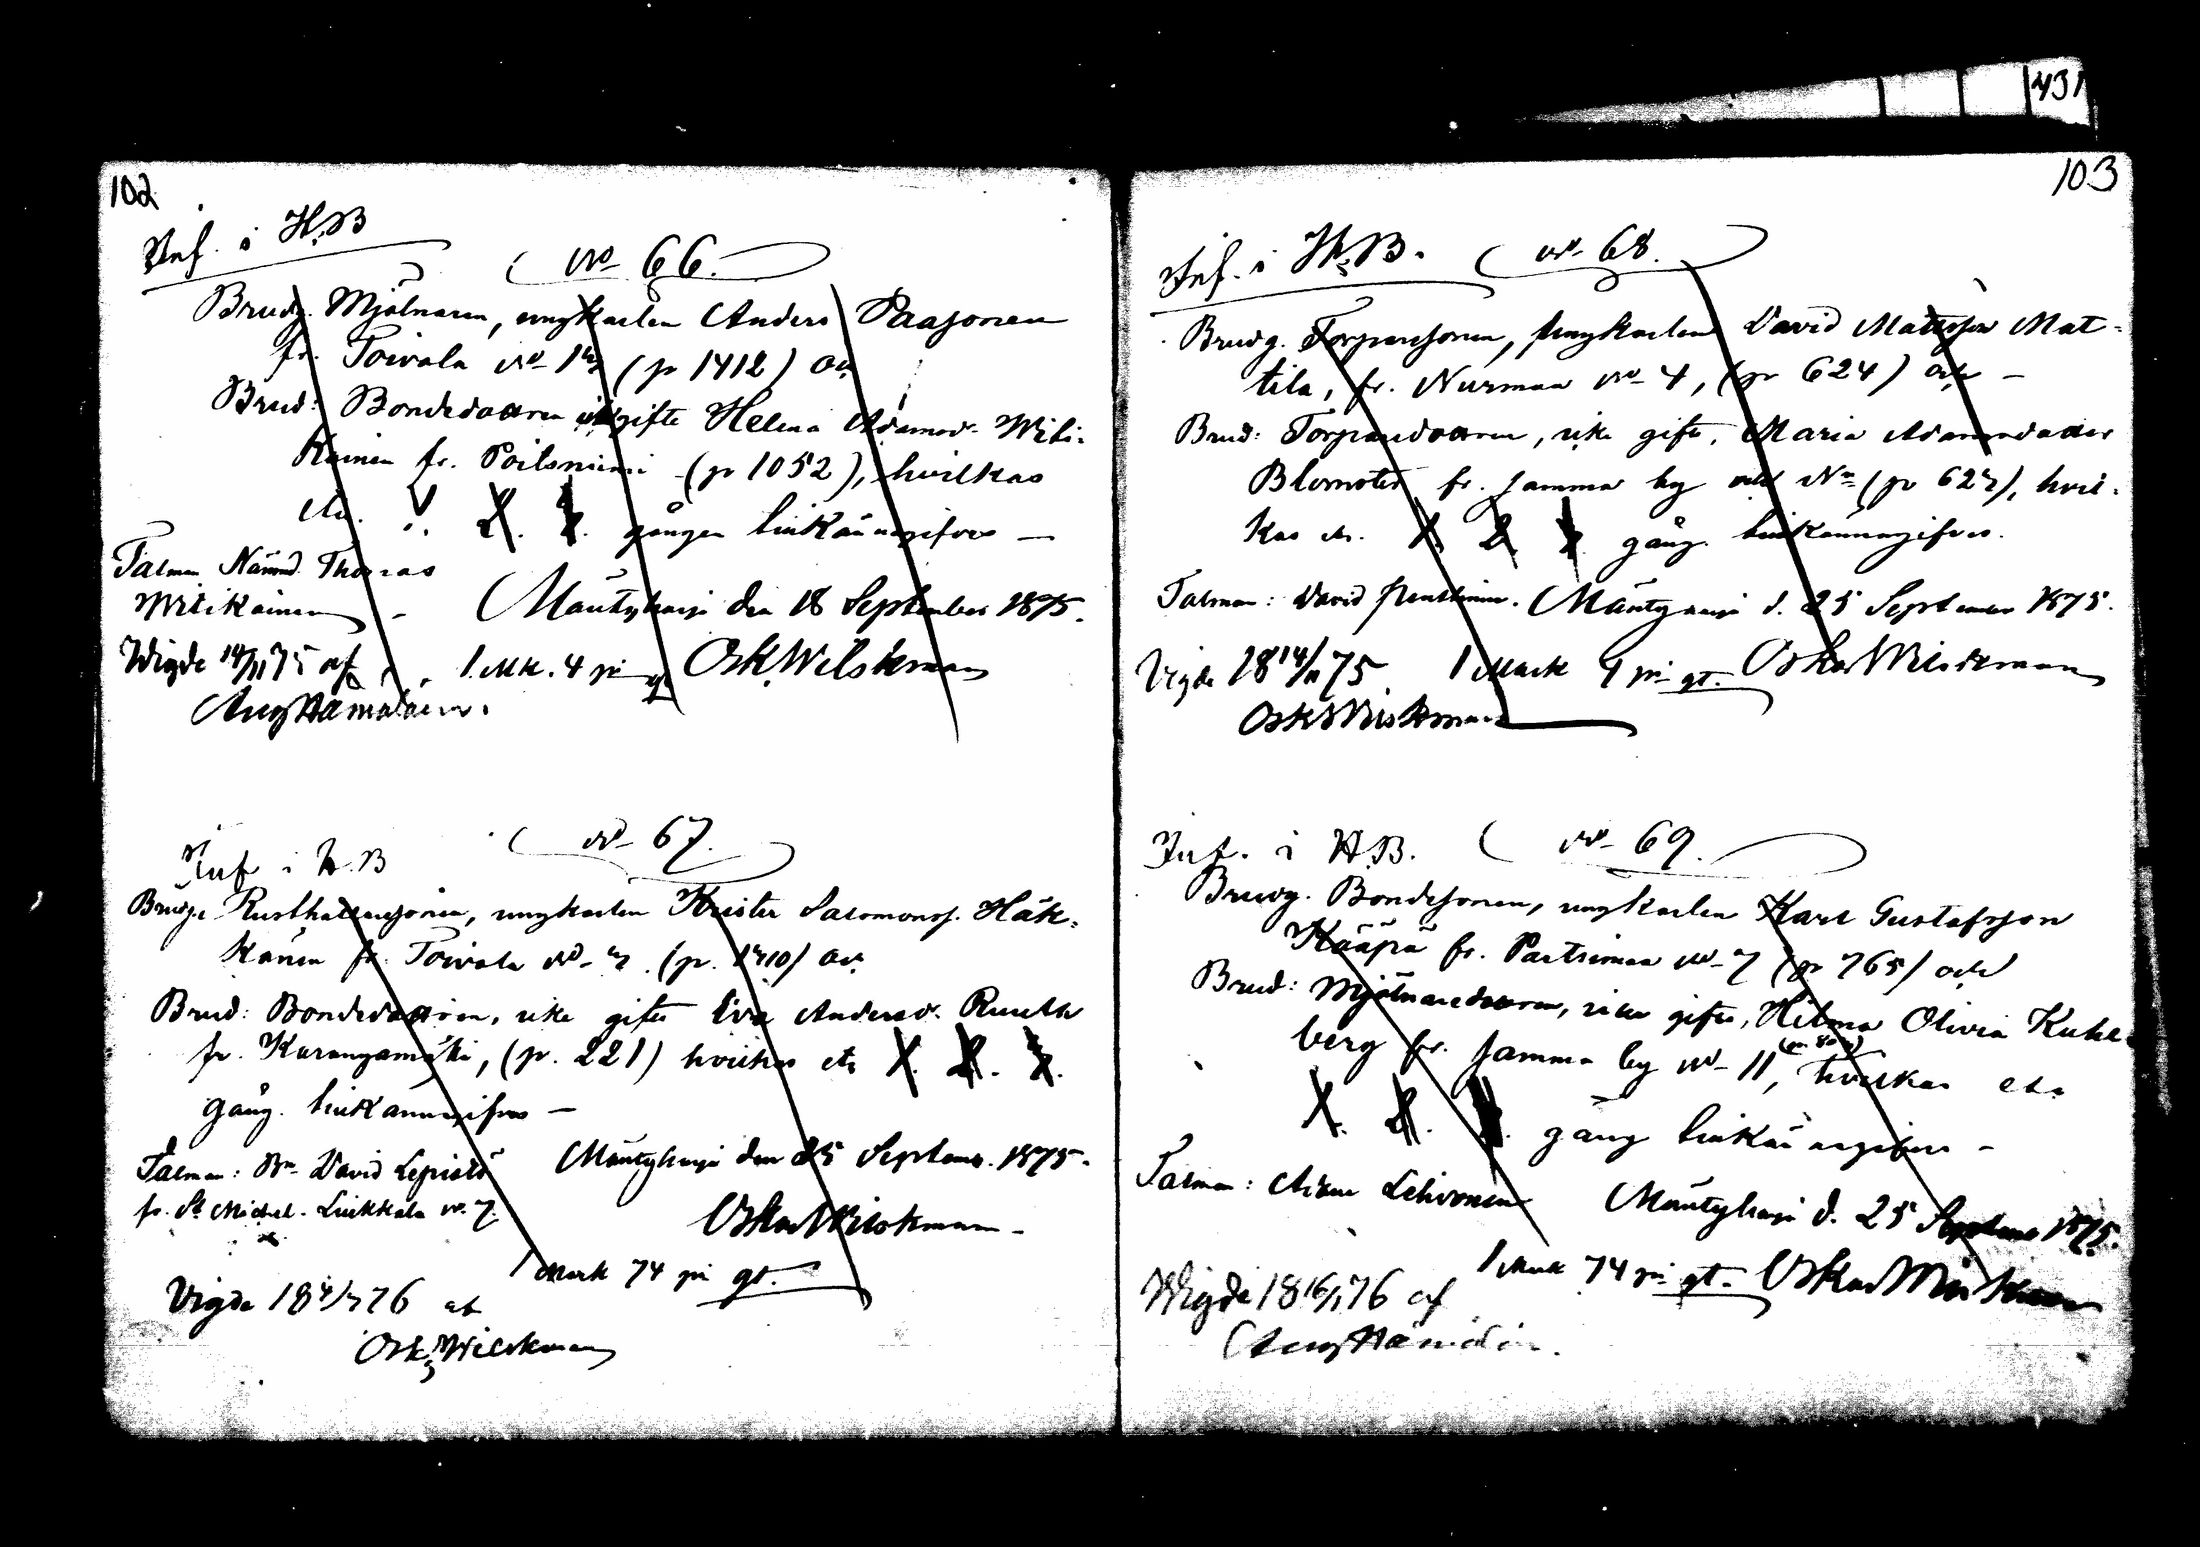 431
102
Inf. i H.B
No 66.
Brudg. Mjölnaren, ungkarlen Anders Paajonen
fr. Toivola No 12 (p 1412) oc
Brud: Bondedottren icke gifte Helena Adamsd. Witi-
kainen fr. Poitsniemi (p 1052), hvilkas
etc. 1. 2. 3. gången linkännagifves —
Talman Nämnd. Thomas
Witikainen - Mäntyharju den 18 September 1875.
Wigde 14/11 75 af 1. Mk. 4 pi gt. Osk. Wilskman
Aug Hämäläinen.
No 67.
Inf i H.B
Brudg. Rusthållaresonen, ungkarlen Krister Salomonsf. Häk-
känen fr. Toivola No 2. (p. 1410) oc
Brud: Bondedottren, icke gifte Eva Andersd. Ruuth
fr. Kurangamäki, (p. 221) hvilkas etc 1. 2. 3.
gång. linkännagifves —
Talman: Bn David Lepistö Mäntyharju den 25 Septemb. 1875.
fr. St Michel. Liukkala No 7. Oskar Wilskman -
1 Mark 74 pi gt.
Vigde 18 4/2 76 af
Osk. Wilskman
103
Inf. i H.B. No 68.
Brudg. Torparesonen, Ungkarlen David Mattsson Mat-
tila, fr. Nurmaa No 4, (p 624) och —
Brud: Torparedottren, icke gifte, Maria Adamsdotter
Blomster fr. samma by och No (p 622), hvil-
kas etc. 1. 2. 3. gång. linkännagifves.
Talman: David Penttinen. Mäntyharju d. 25 September 1875.
Vigde 18 14/11 75 1 Mark 4 pi gt. Oskar Wilskman
Osk Wilskman
Inf. i H.B. No 69.
Brudg. Bondesonen, ungkarlen Karl Gustafsson
Kääpä fr. Partsimaa No 7 (p 765) och
Brud: Mjölnaredottren, icke gifte, Hilma Olivia Kuhl-
berg fr. samma by No 11, hvilkas etc
1. 2. 3. gång linkännagifves -
Talman: Adam Lehvonen Mäntyharju d. 25 Septemb 1875.
1 Mark 74 pi gt. Oskar Wilskman
Wigde 18 16/1 76 af
Aug Hämäläin.